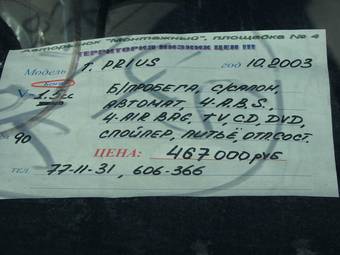 Авторынок "Монтажный", площадка № 4
ТЕРРИТОРИЯ НИЗКИХ ЦЕН !!!
Модель T. PRIUS год 10.2003
Б/ПРОБЕГА, С/САЛОН,
V
АВТОМАТ, 4.A.B.S.,
4.AIR BAG, TV, CD, DVD,
№ 90
СПОЙЛЕР, ЛИТЬЁ, ОТЛ.СОСТ.
ЦЕНА: 467 000 РУБ
ТЕЛ. 77-11-31, 606-366